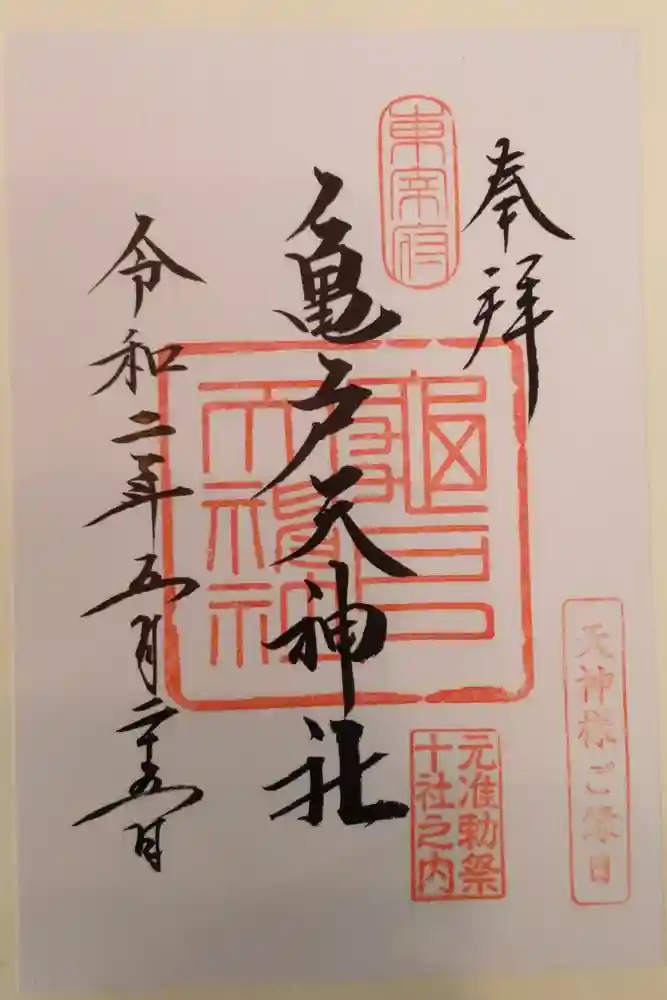 奉拝
東宰府
亀戸天神社
令和二年五月二十五日
元准勅祭
十社之内
天神様ご縁日